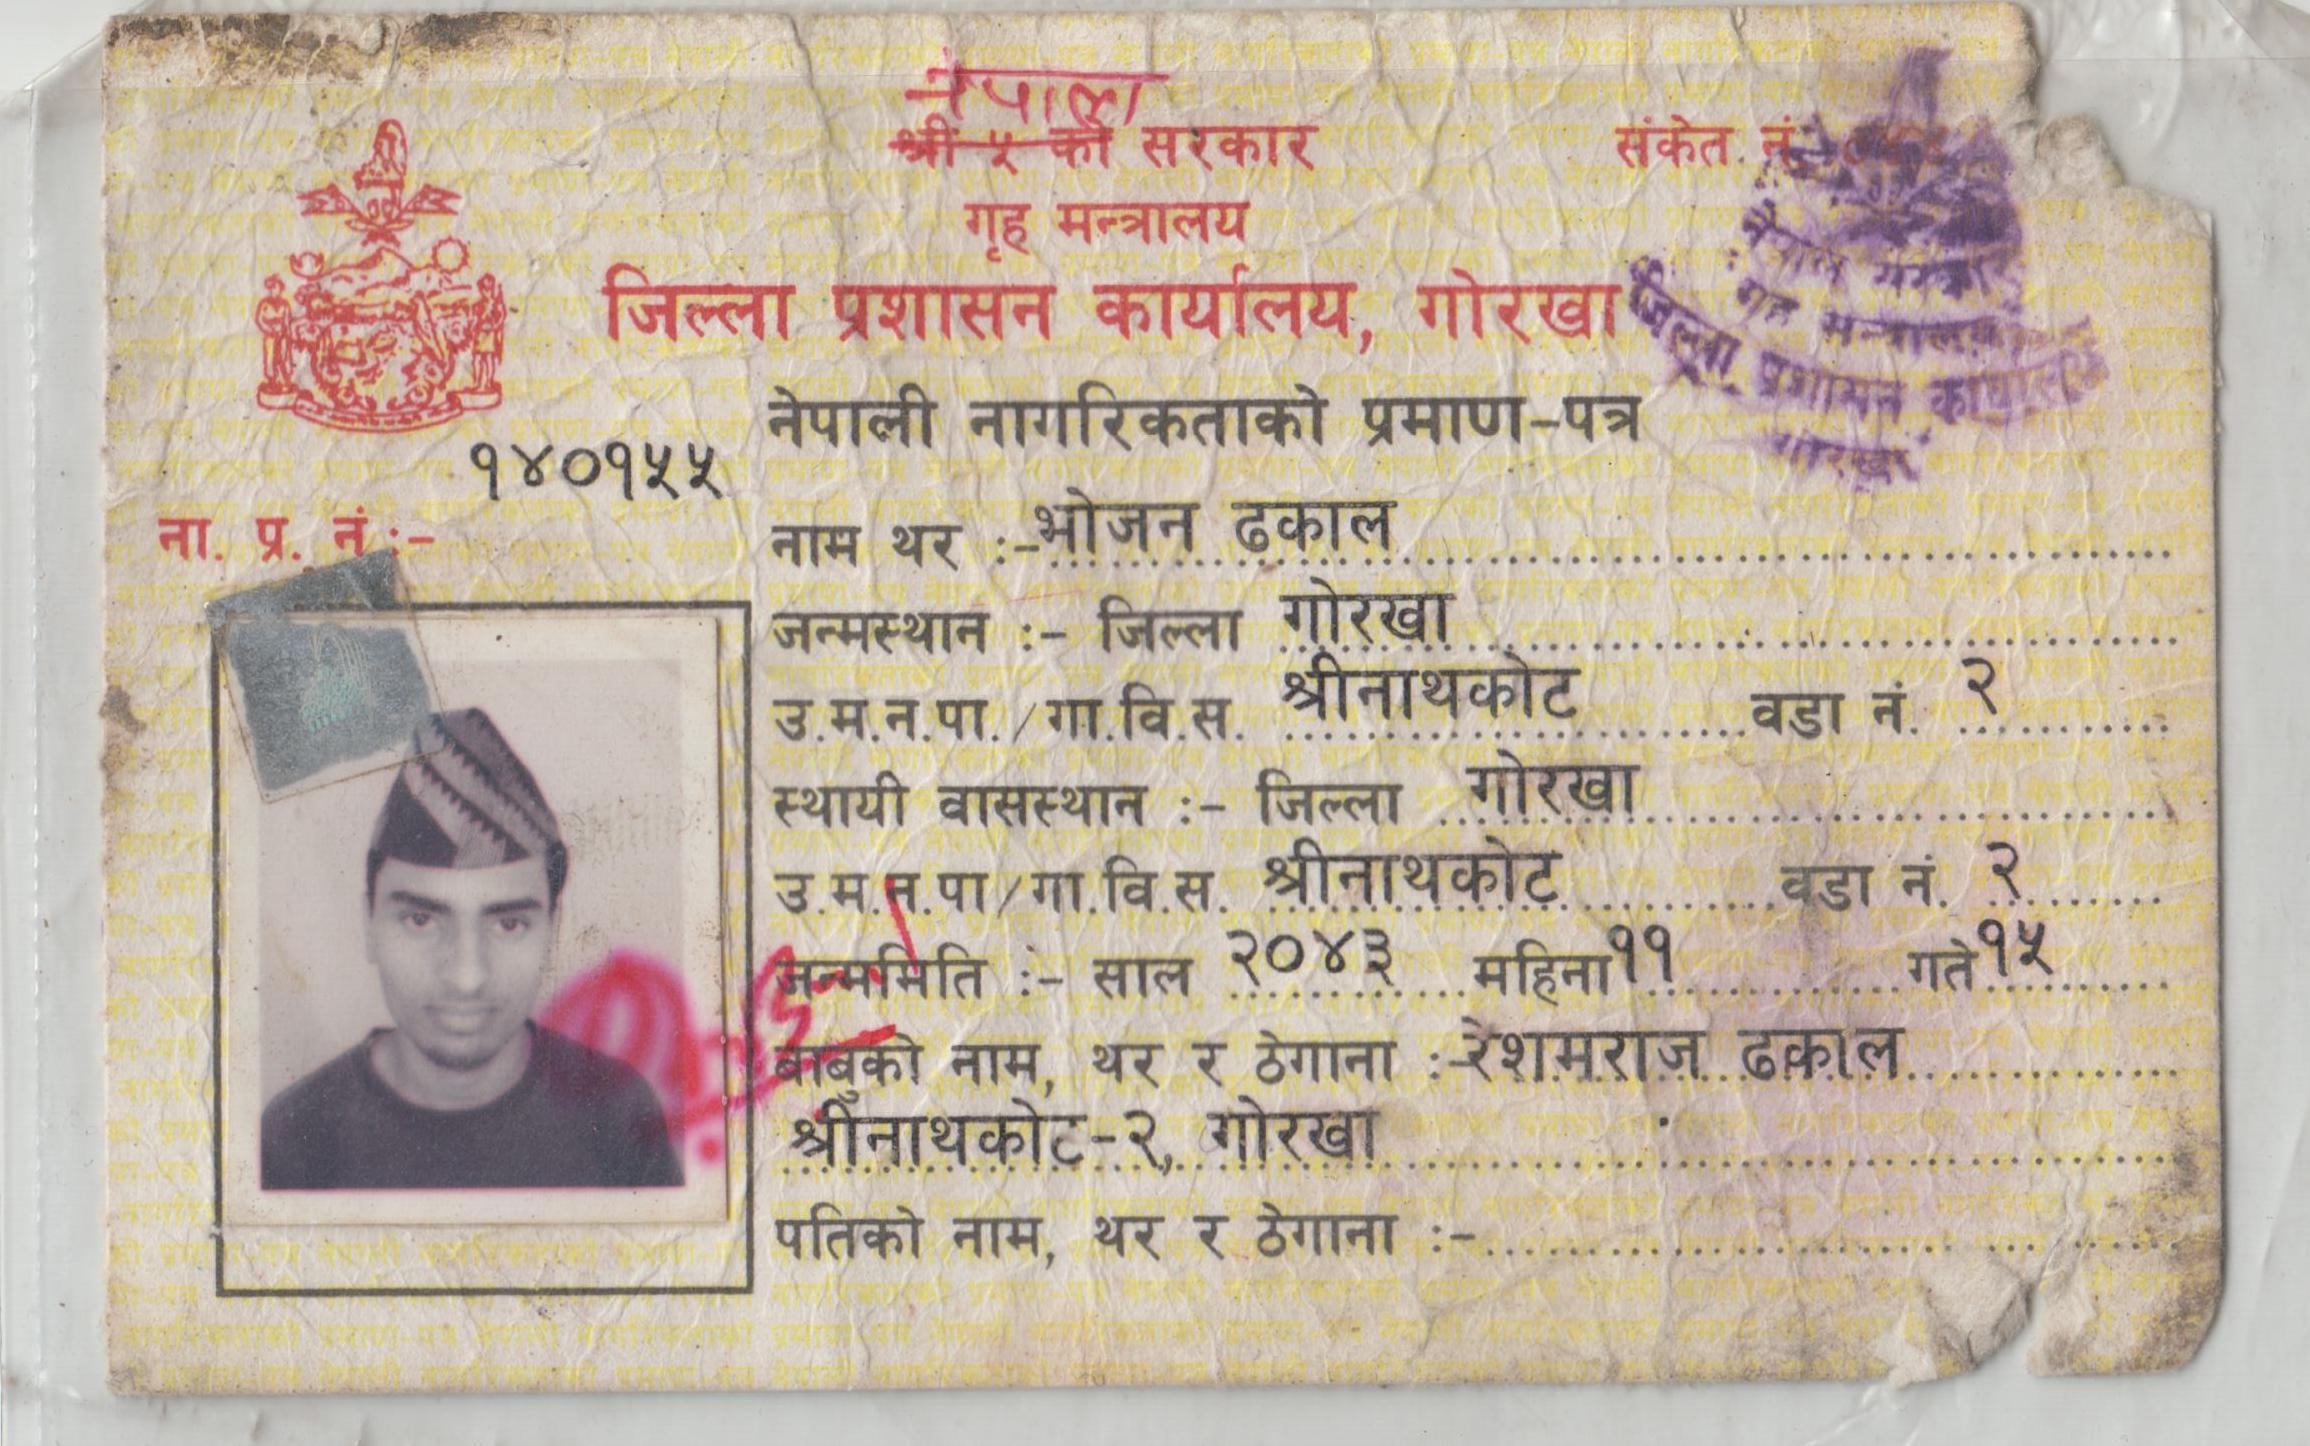 नेपाल
श्री ५ को सरकार
संकेत नं.
गृह मन्त्रालय
जिल्ला प्रशासन कार्यालय, गोरखा
नेपाल सरकार
गृह मन्त्रालय
जिल्ला प्रशासन कार्यालय
गोरखा
नेपाली नागरिकताको प्रमाण-पत्र
१४०१५५
ना. प्र. नं :-
नाम थर :- भोजन ढकाल
जन्मस्थान :- जिल्ला गोरखा
उ.म.न.पा./गा.वि.स. श्रीनाथकोट वडा नं. २
स्थायी वासस्थान :- जिल्ला गोरखा
उ.म.न.पा/गा.वि.स. श्रीनाथकोट वडा नं. २
जन्ममिति :- साल २०४३ महिना ११ गते १५
बाबुको नाम, थर र ठेगाना :- रेशमराज ढकाल
श्रीनाथकोट-२, गोरखा
पतिको नाम, थर र ठेगाना :-